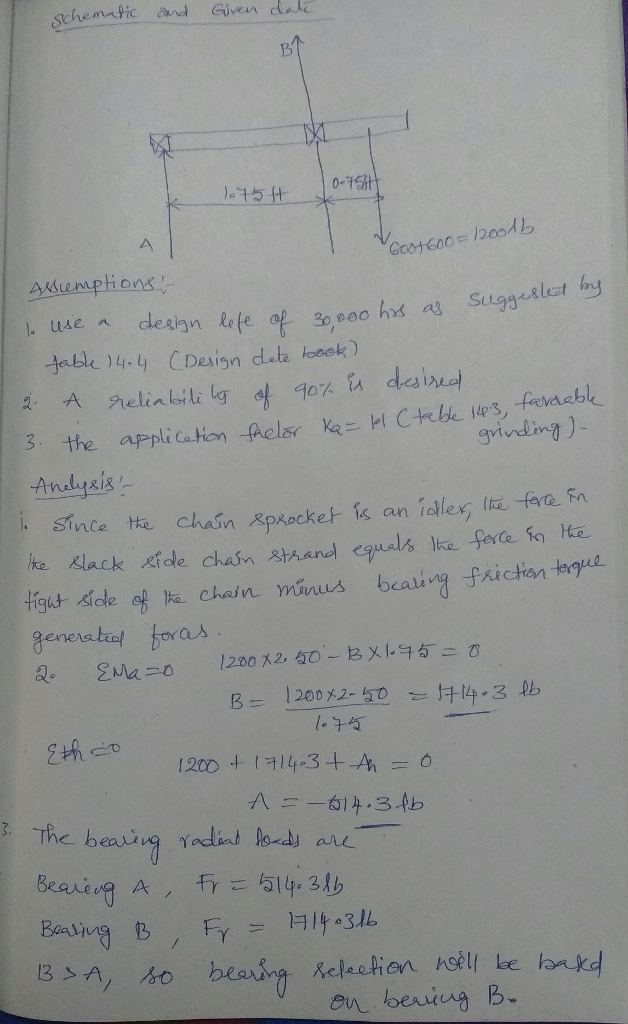 Schematic and Given date
B
1.75 ft
0.75ft
A
600+600 = 1200lb
Assumptions:-
1. use a design life of 30,000 hrs as suggested by
table 14.4 (Design date book)
2. A reliability of 90% is desired
3. the application factor Ka = 1.1 (table 14.3, favorable
grinding).
Analysis:-
1. Since the chain sprocket is an idler, the force in
the slack side chain strand equals the force in the
tight side of the chain minus bearing friction torque
generated forces.
2. ΣMa=0 1200 x 2.50 - B x 1.75 = 0
B = 1200x2.50 / 1.75 = 1714.3 lb
=0 1200 + 1714.3 + An = 0
A = -514.3 lb
3. The bearing radial loads are
Bearing A, Fr = 514.3lb
Bearing B, Fr = 1714.3lb
B > A, so bearing selection will be based
on bearing B.